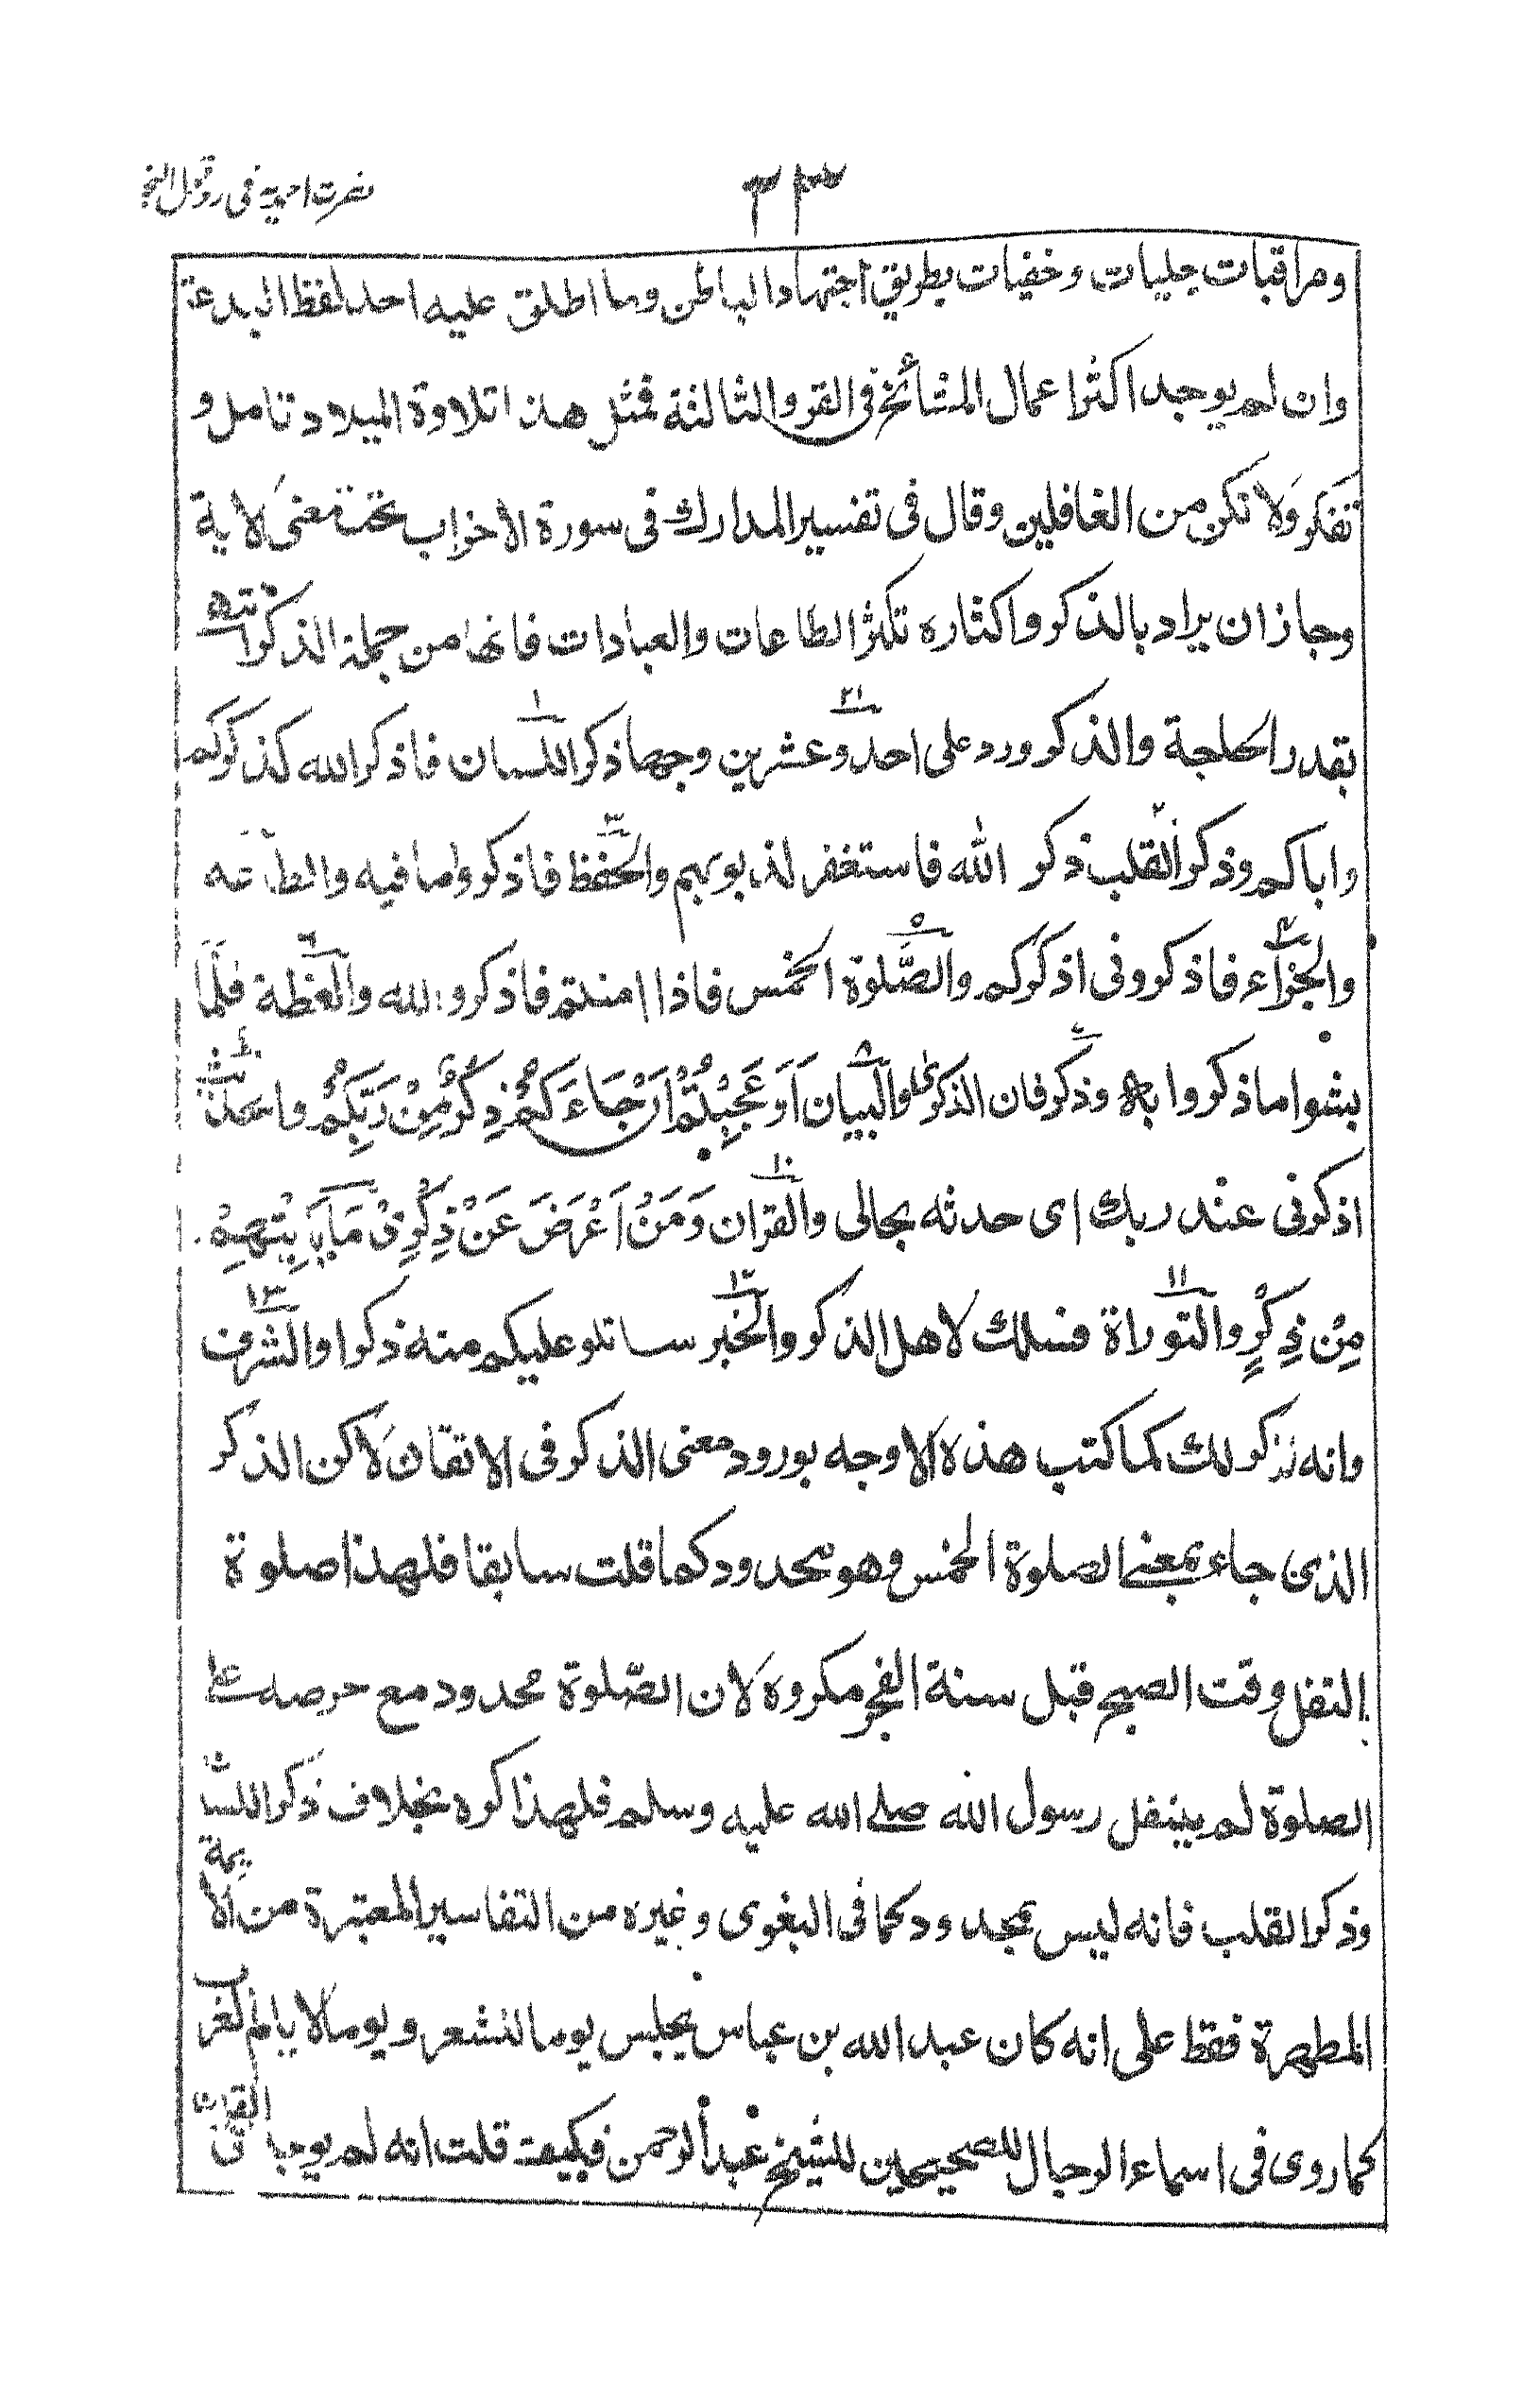 ٣٣
نصرت احمدیه فی رد قول النجدیه
ومراقبات جليات وخفيات بطريق اجتهاد الباطن وما اطلق عليه احد لفظ البدعة
وان لم يوجد اكثر اعمال المشائخ فى القرو الثالثة فمثل هذا تلاوة الميلاد تامل و
تفكر ولا تكن من الغافلين وقال فى تفسير المدارك فى سورة الأحزاب تحت معنى لاية
وجاز ان يراد بالذكر واكثاره تكثر الطاعات والعبادات فانها من جملة الذكر انتهى
بقدر الحاجة والذكر ورد على احد وعشرين وجها ذكر اللسان فاذكر الله كذكركم
واباكم وذكر القلب ذكر الله فاستغفر لذنوبهم والحفظ فاذكروا ما فيه والطاعة
والجزاء فاذكرونى اذكركم والصّلوة الخمس فاذا امنتم فاذكروا الله والعظة فلمّا
نسوا ما ذكروا به وذكر فان الذكرى والبيان اَوَ عَجِبْتُمْ اَنْ جَاءَكُمْ ذِكْرٌ مِنْ رَبِّكُمْ والحديث
اذكرنى عند ربك اى حدثه بحالى والقران وَمَنْ اَعْرَضَ عَنْ ذِكْرِىْ مَا يَأْتِيْهِمْ
مِنْ ذِكْرٍ والتوراة فسئلك لاهل الذكر والخبر ساتلو عليكم منه ذكرا والشرف
وانه لذكر لك كما كتب هذه الاوجه بورود معنى الذكر فى الاتقان لاكن الذكر
الذى جاء بمعنى الصلوة الخمس وهو محدود كما قلت سابقا فلهذا صلوة
التفل وقت الصبح قبل سنة الفجر مكروه لان الصّلوة محدود مع حرصه على
الصلوة لم يتنفل رسول الله صلے الله عليه وسلم فلهذا كره بخلاف ذكر اللسان
وذكر القلب فانه ليس بمحدود كما فى البغوى وغيره من التفاسير المعتبرة من الائمة
المطهرة فقط على انه كان عبد الله بن عباس يجلس يوما لشعر ويوما لايام العرب
كما روى فى اسماء الرجال للصحيحين للشيخ عبد الرحمن فكيف قلت انه لم يوجد فى القران